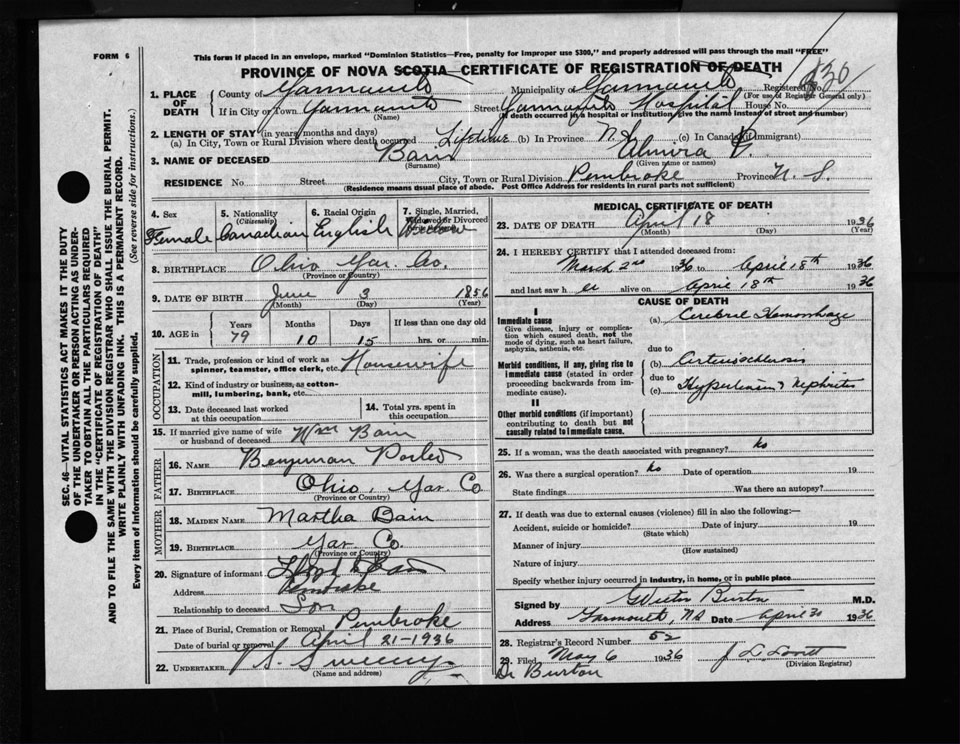 FORM 6
This form if placed in an envelope, marked "Dominion Statistics—Free, penalty for improper use $300," and properly addressed will pass through the mail "FREE"
PROVINCE OF NOVA SCOTIA—CERTIFICATE OF REGISTRATION OF DEATH
1. PLACE OF DEATH { County of Yarmouth Municipality of Yarmouth Registered No. (For use of Registrar General only)
If in City or Town Yarmouth (Name) Street Yarmouth Hospital House No.
(If death occurred in a hospital or institution, give the name instead of street and number)
2. LENGTH OF STAY (in years, months and days)
(a) In City, Town or Rural Division where death occurred Lifetime (b) In Province N.S. (c) In Canada (if immigrant)
3. NAME OF DECEASED Bain (Surname) Almira P. (Given name or names)
RESIDENCE No. Street City, Town or Rural Division Pembroke Province N. S.
(Residence means usual place of abode. Post Office Address for residents in rural parts not sufficient)
4. Sex Female
5. Nationality (Citizenship) Canadian
6. Racial Origin English
7. Single, Married, Widowed or Divorced Widow
8. BIRTHPLACE Ohio Yar. Co. (Province or Country)
9. DATE OF BIRTH June (Month) 3 (Day) 1856 (Year)
10. AGE in { Years 79 Months 10 Days 15 If less than one day old hrs. or min.
OCCUPATION
11. Trade, profession or kind of work as spinner, teamster, office clerk, etc. Housewife
12. Kind of industry or business, as cotton-mill, lumbering, bank, etc.
13. Date deceased last worked at this occupation
14. Total yrs. spent in this occupation
15. If married give name of wife or husband of deceased Wm Bain
FATHER
16. NAME Benjiman
17. BIRTHPLACE Ohio, Yar. Co (Province or Country)
MOTHER
18. MAIDEN NAME Martha Bain
19. BIRTHPLACE Yar. Co. (Province or Country)
20. Signature of informant Bain
Address Pembroke
Relationship to deceased Son
21. Place of Burial, Cremation or Removal Pembroke
Date of burial or removal April 21-1936
22. UNDERTAKER Sweeny (Name and address)
MEDICAL CERTIFICATE OF DEATH
23. DATE OF DEATH April 18 1936
(Month) (Day) (Year)
24. I HEREBY CERTIFY that I attended deceased from:
March 2nd 1936 to April 18th 1936
and last saw h er alive on April 18th 1936
CAUSE OF DEATH
I
Immediate cause
Give disease, injury or complication which caused death, not the mode of dying, such as heart failure, asphyxia, asthenia, etc.
(a) Cerebral Hemorrhage
due to
Morbid conditions, if any, giving rise to immediate cause (stated in order proceeding backwards from immediate cause).
(b) Arteriosclerosis
due to
(c) Hypertension & Nephritis
II
Other morbid conditions (if important) contributing to death but not causally related to immediate cause.
25. If a woman, was the death associated with pregnancy? No
26. Was there a surgical operation? No Date of operation 19
State findings Was there an autopsy?
27. If death was due to external causes (violence) fill in also the following:—
Accident, suicide or homicide? Date of injury 19
(State which)
Manner of injury
(How sustained)
Nature of injury
Specify whether injury occurred in industry, in home, or in public place
Signed by Burton M.D.
Address Yarmouth, NS Date April 30 1936
28. Registrar's Record Number 52
29. Filed May 6 1936 J L Lovitt
(Division Registrar)
Dr Burton
SEC. 46—VITAL STATISTICS ACT MAKES IT THE DUTY
OF THE UNDERTAKER OR PERSON ACTING AS UNDER-
TAKER TO OBTAIN ALL THE PARTICULARS REQUIRED
IN THE "CERTIFICATE OF REGISTRATION OF DEATH"
AND TO FILE THE SAME WITH THE DIVISION REGISTRAR WHO SHALL ISSUE THE BURIAL PERMIT.
WRITE PLAINLY WITH UNFADING INK. THIS IS A PERMANENT RECORD.
Every item of information should be carefully supplied. (See reverse side for instructions.)